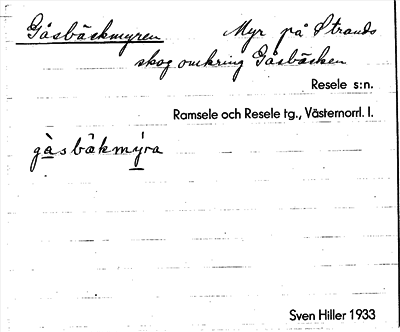 Gåsbäckmyren Myr på Strands
skog omkring Gåsbäcken
Resele s:n.
Ramsele och Resele tg., Västernorrl. l.
gå̀sbäkmýra
Sven Hiller 1933